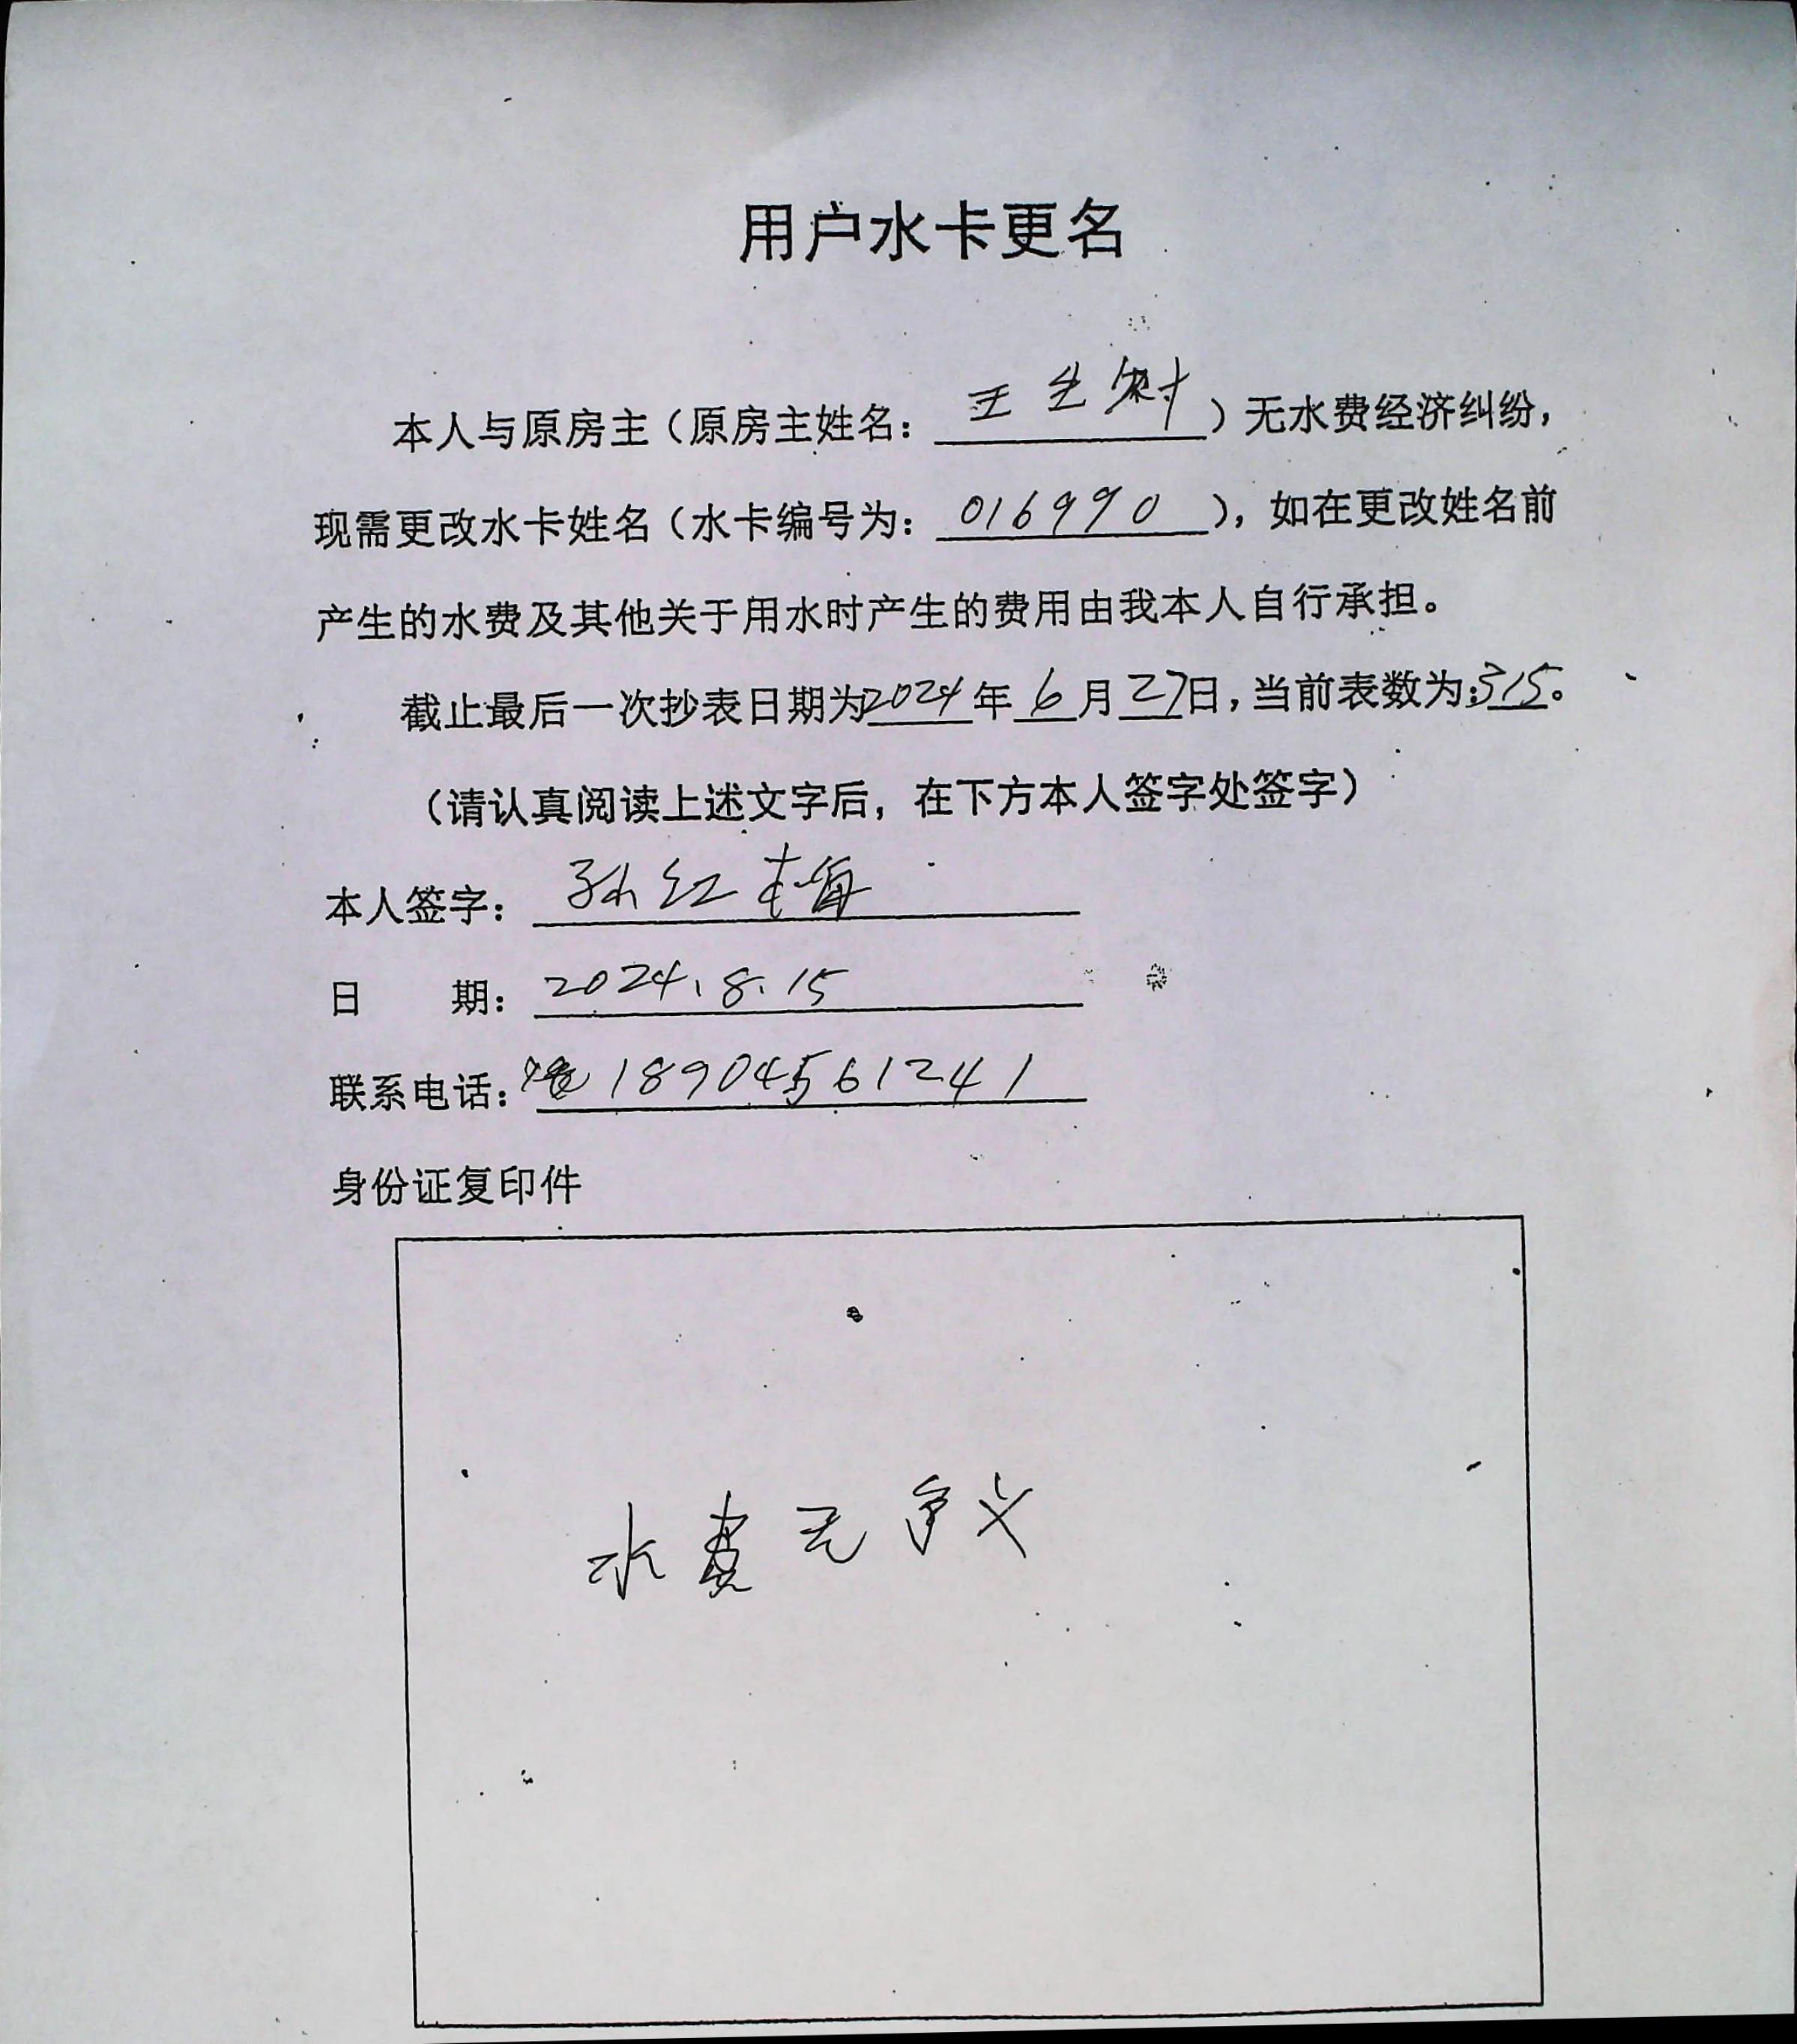 用户水卡更名
本人与原房主（原房主姓名：王生树）无水费经济纠纷，
现需更改水卡姓名（水卡编号为：016990），如在更改姓名前
产生的水费及其他关于用水时产生的费用由我本人自行承担。
截止最后一次抄表日期为2024年6月27日，当前表数为：315。
（请认真阅读上述文字后，在下方本人签字处签字）
本人签字：孙红梅
日 期：2024.8.15
联系电话：18904561241
身份证复印件
水费无争义